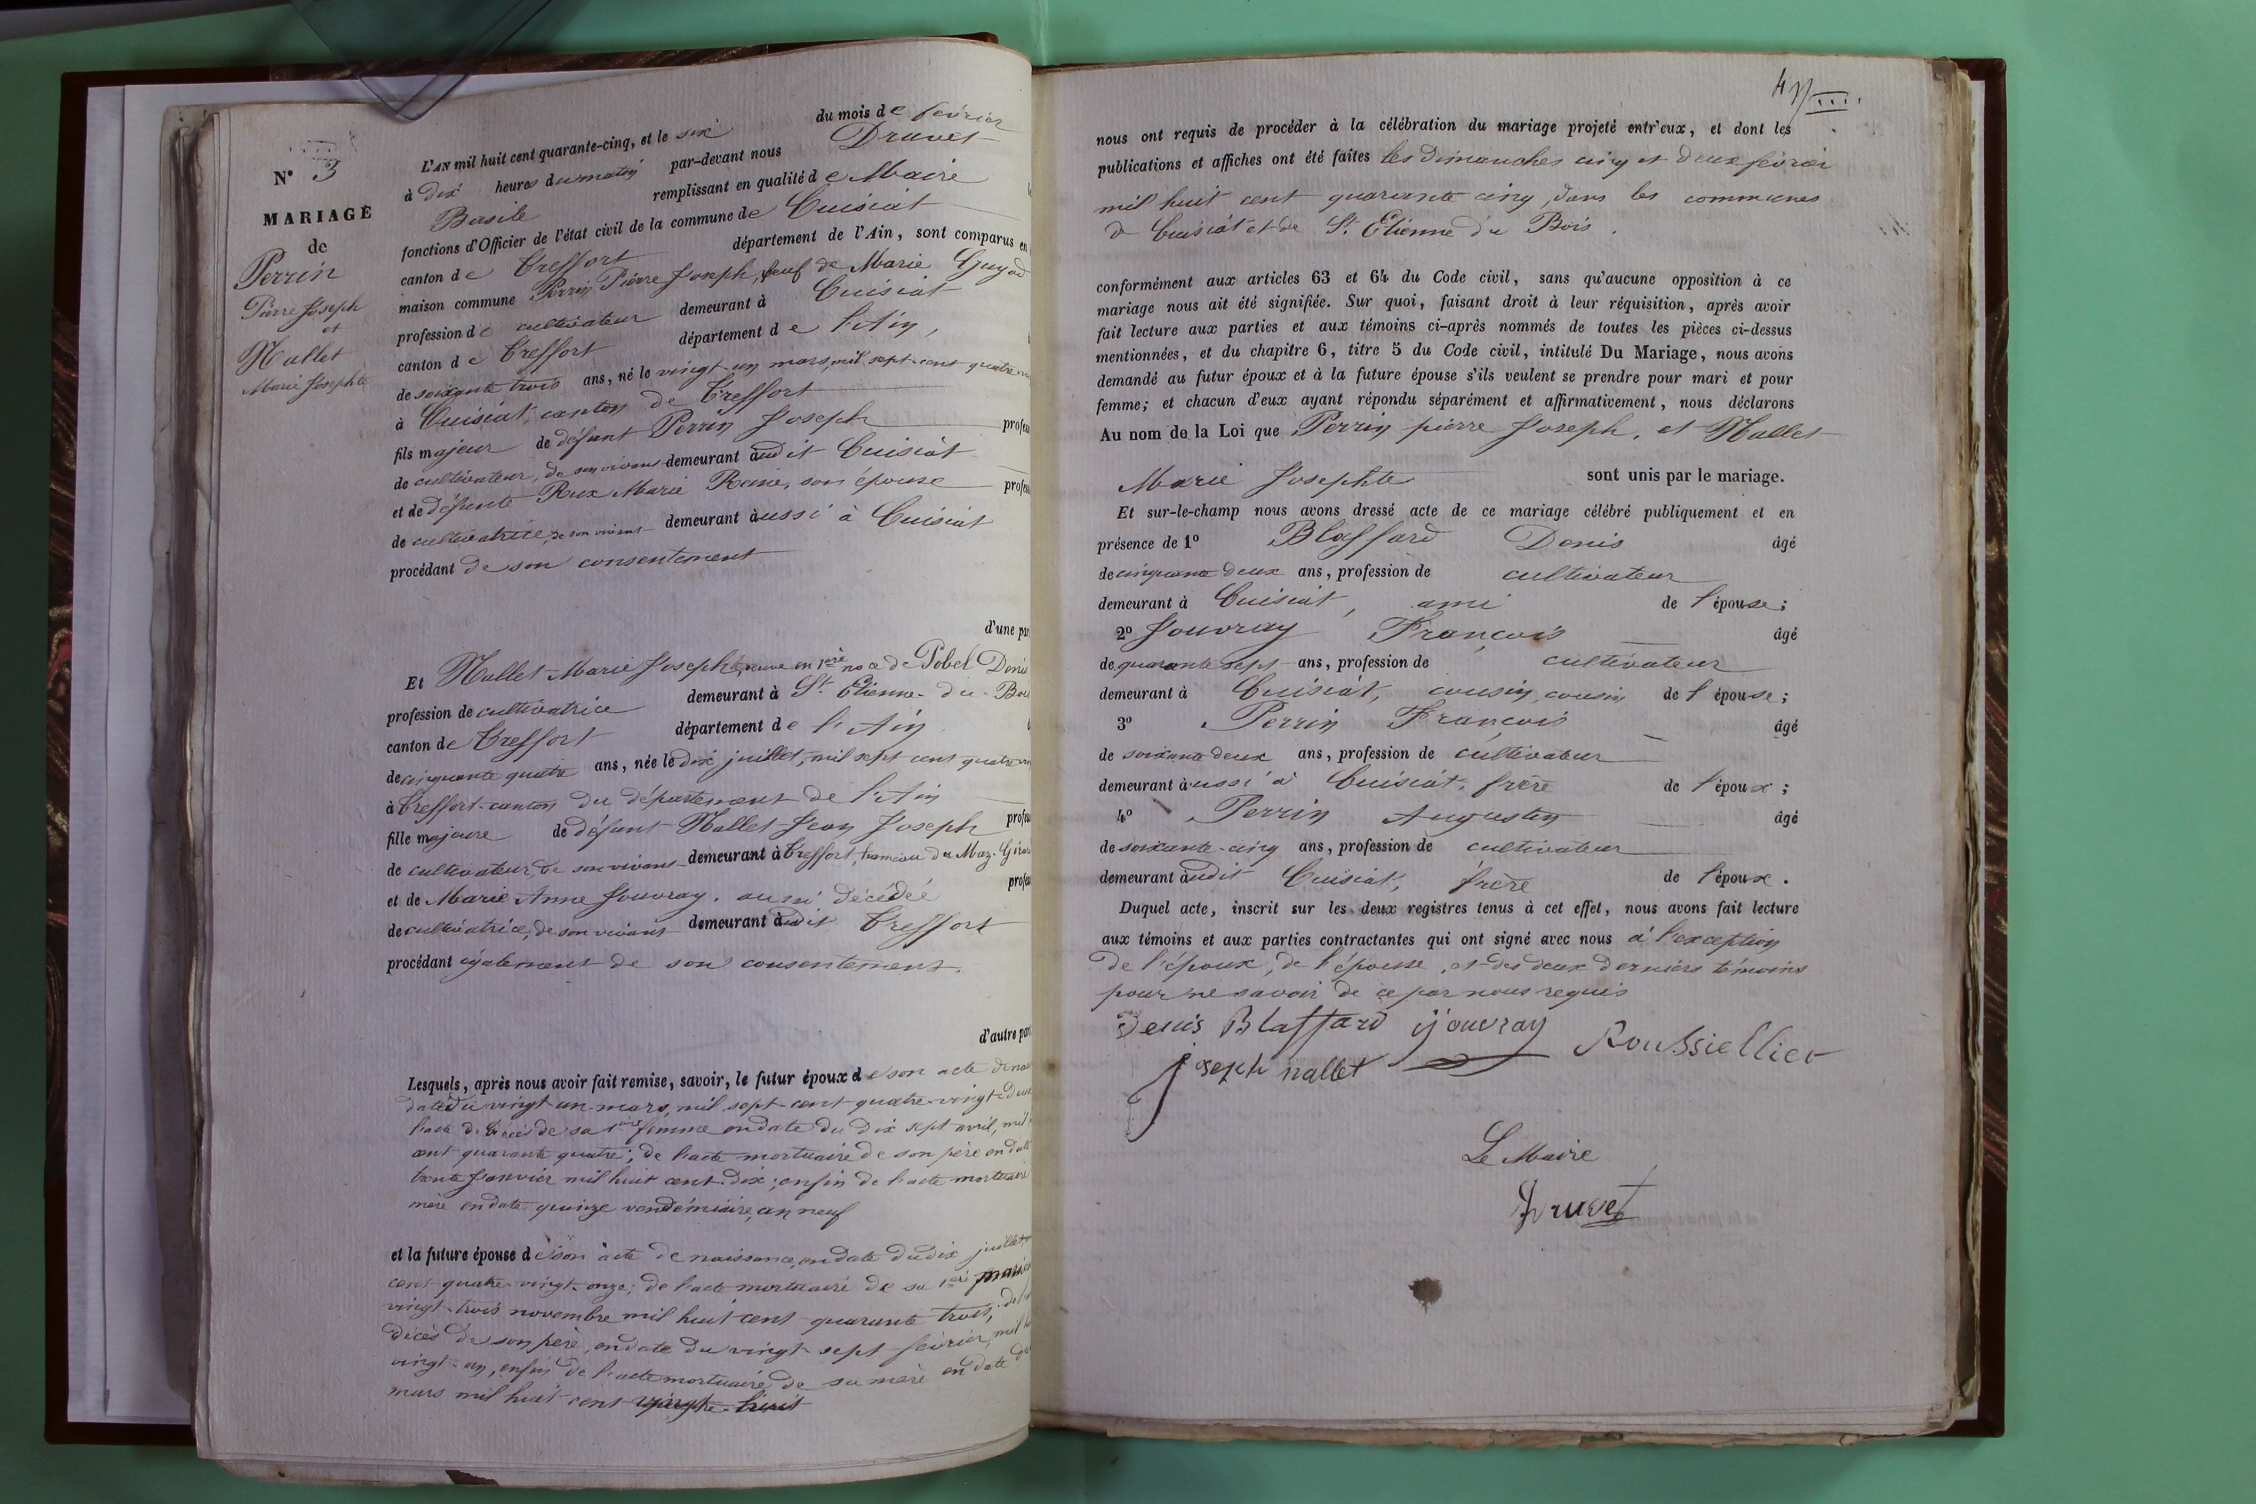 N° 3
MARIAGE
de
Perrin
Pierre Joseph
et
Nallet
Marie Josephte
L'AN mil huit cent quarante-cinq, et le six du mois de février
à dix heures du matin par-devant nous Druvet
Basile remplissant en qualité de Maire
fonctions d'Officier de l'état civil de la commune de Cuisiat
canton de Treffort département de l'Ain, sont comparus en
maison commune Perrin Pierre Joseph, veuf de Marie Guyod
profession de cultivateur demeurant à Cuisiat
canton de Treffort département de l'Ain,
de soixante trois ans, né le vingt-un mars mil sept-cent quatre
à Cuisiat, canton de Treffort
fils majeur de défunt Perrin Joseph profes
de cultivateur, de son vivant demeurant audit Cuisiat
et de défunte Rux Marie Reine, son épouse profes
de cultivatrice, de son vivant demeurant aussi à Cuisiat
procédant de son consentement
d'une par
Et Nallet Marie Josephte, veuve en 1ère noce de Pobel Denis
profession de cultivatrice demeurant à St. Etienne-du-Bois
canton de Treffort département de l'Ain
de cinquante quatre ans, née le dix juillet, mil sept cent quatre
à Treffort canton du département de l'Ain
fille majeure de défunt Nallet Jean Joseph profes
de cultivateur, de son vivant demeurant à Treffort, hameau du Maz-Girar
et de Marie Anne Jouvray, aussi décédée profes
de cultivatrice, de son vivant demeurant audit Treffort
procédant également de son consentement.
d'autre part
Lesquels, après nous avoir fait remise, savoir, le futur époux de son acte de nais
daté du vingt-un mars, mil sept-cent quatre-vingt-deux
l'acte de décès de sa 1ère femme en date du dix sept avril, mil
cent quarante quatre; de l'acte mortuaire de son père en date
trente Janvier mil huit cent dix; enfin de l'acte mortuaire
mère en date quinze vendémiaire, an neuf
et la future épouse de son acte de naissance, en date du dix juillet
cent quatre-vingt-onze; de l'acte mortuaire de son 1er mari
vingt-trois novembre mil huit cent quarante trois, de l
décès de son père, en date du vingt-sept février, mil h
vingt-un, enfin de l'acte mortuaire de sa mère en date d
mars mil huit cent
47
nous ont requis de procéder à la célébration du mariage projeté entr'eux, et dont les
publications et affiches ont été faites les dimanches cinq et deux février
mil huit cent quarante cinq, dans les communes
de Cuisiat et de St. Etienne du Bois.
conformément aux articles 63 et 64 du Code civil, sans qu'aucune opposition à ce
mariage nous ait été signifiée. Sur quoi, faisant droit à leur réquisition, après avoir
fait lecture aux parties et aux témoins ci-après nommés de toutes les pièces ci-dessus
mentionnées, et du chapitre 6, titre 5 du Code civil, intitulé Du Mariage, nous avons
demandé au futur époux et à la future épouse s'ils veulent se prendre pour mari et pour
femme; et chacun d'eux ayant répondu séparément et affirmativement, nous déclarons
Au nom de la Loi que Perrin pierre Joseph, et Nallet
Marie Josephte sont unis par le mariage.
Et sur-le-champ nous avons dressé acte de ce mariage célébré publiquement et en
présence de 1° Blaffard Denis âgé
de cinquante deux ans, profession de cultivateur
demeurant à Cuisiat, ami de l'épouse;
2° Jouvray François âgé
de quarante sept ans, profession de cultivateur
demeurant à Cuisiat, cousin, cousin de l'épouse;
3° Perrin François âgé
de soixante deux ans, profession de cultivateur
demeurant aussi à Cuisiat, frère de l'époux;
4° Perrin Augustin âgé
de soixante-cinq ans, profession de cultivateur
demeurant audit Cuisiat, frère de l'époux.
Duquel acte, inscrit sur les deux registres tenus à cet effet, nous avons fait lecture
aux témoins et aux parties contractantes qui ont signé avec nous à l'exception
de l'époux, de l'épouse, et des deux derniers témoins
pour ne savoir de ce par nous requis
Denis Blaffard Jouvray Roussiellier
joseph nallet
Le Maire
Druvet